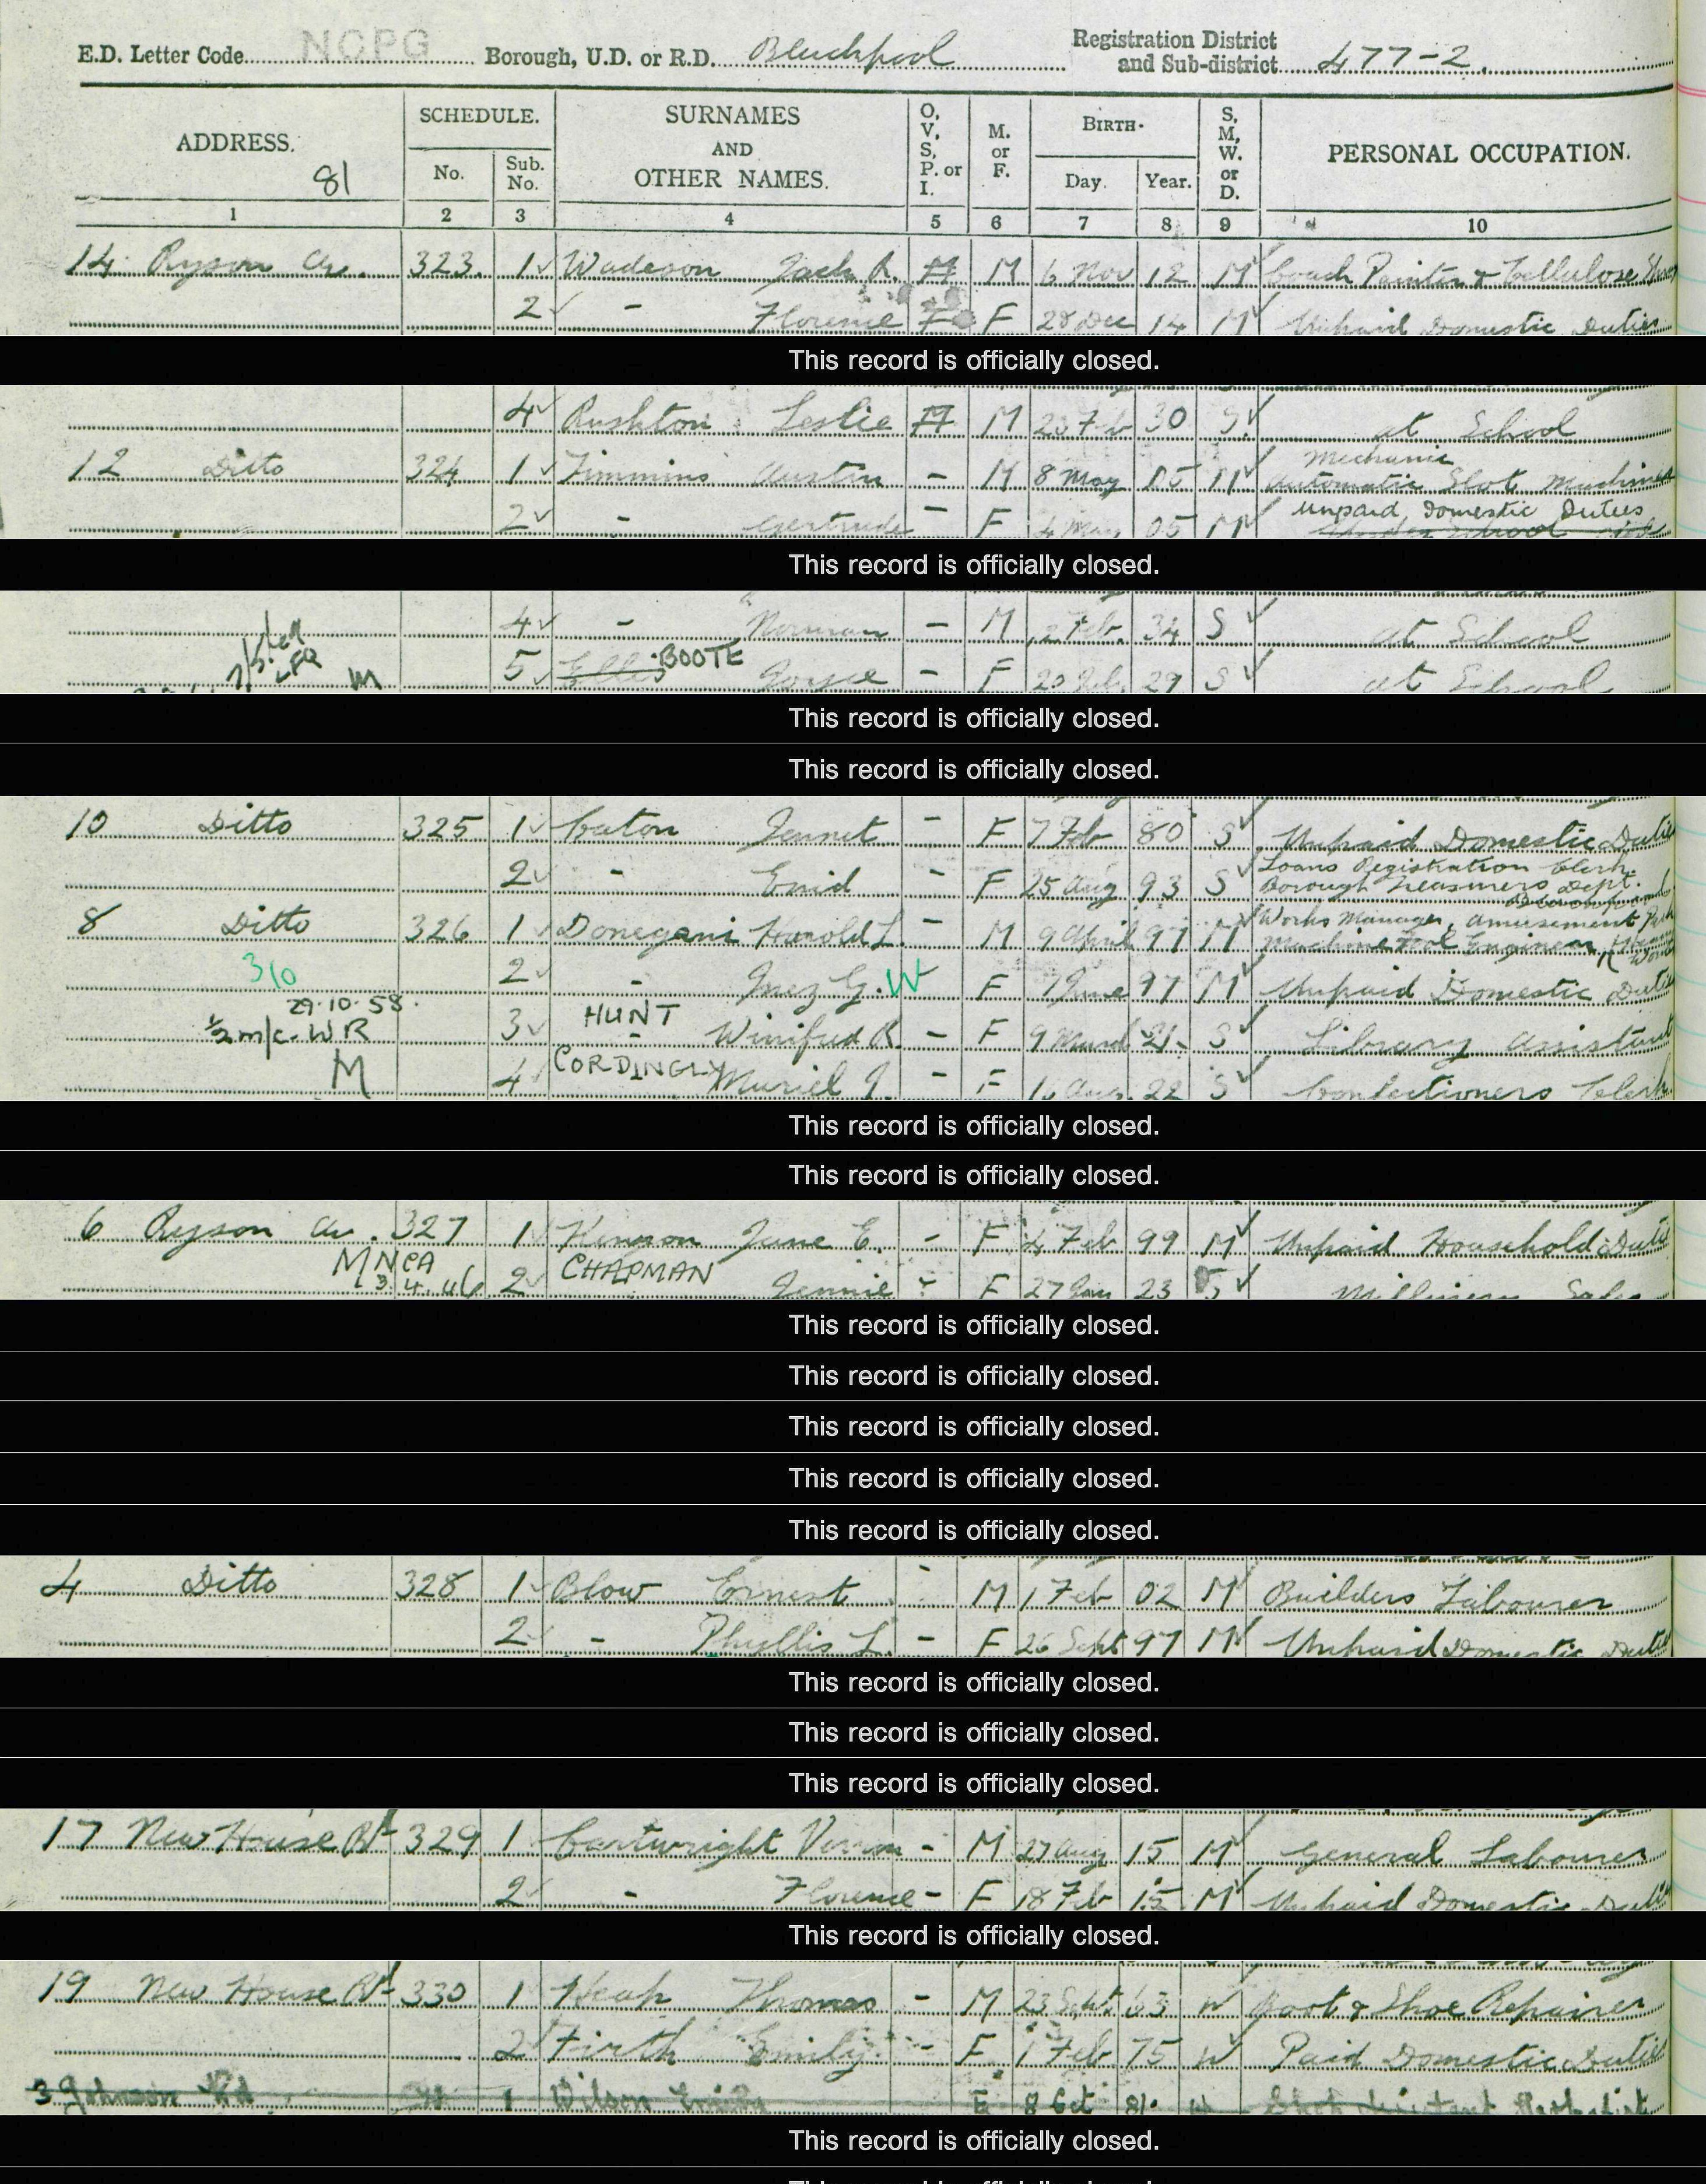 E.D. Letter Code NCPG Borough, U.D. or R.D. Blackpool Registration District and Sub-district 477-2.
ADDRESS. SCHEDULE. No. Sub. No. SURNAMES AND OTHER NAMES. O, V, S, P. or I. M. or F. BIRTH. Day. Year. S, M, W. or D. PERSONAL OCCUPATION.
81
1 2 3 4 5 6 7 8 9 10
14 Ryson Av. 323. 1 Wadeson Jack R. M M 6 Nov 12 M Coach Painter & Cellulose
2 - Florence F F 28 Dec 14 M Unpaid Domestic Duties
This record is officially closed.
4 Rushton Leslie M M 23 Feb 30 S. at School
12 Ditto 324 1 Timmins Austin - M 8 May 05 M Mechanic Automatic Slot Machines
2 - Gertrude - F 05 M Unpaid Domestic Duties
This record is officially closed.
4 - Norman - M 2 Feb. 34 S at School
5 Ellis BOOTE Joyce - F 20 29 S at School
M
This record is officially closed.
This record is officially closed.
10 Ditto 325 1 Caton Jennet - F 7 Feb 80 S Unpaid Domestic Duties
2 - Enid - F 25 Aug 93 S Loans Registration Clerk Borough Treasurers Dept.
8 Ditto 326 1 Donegani Harold L. - M 9 April 97 M Works Manager, Amusement Machine Tool Engineer
310 2 - Inez G. W F 1 June 97 M Unpaid Domestic Duties
29.10.58.
½ m/c. WR 3 HUNT - Winifred R. - F 9 March 21. S Library Assistant
M 4 CORDINGLY Muriel J. - F 16 Aug. 22 S Confectioners Clerk
This record is officially closed.
This record is officially closed.
6 Ryson Av. 327 1 June E. - F 4 Feb 99 M Unpaid Household Duties
MNCA 3.4.46 2 CHAPMAN Jennie - F 27 Jan 23 S Millinery Sales
This record is officially closed.
This record is officially closed.
This record is officially closed.
This record is officially closed.
This record is officially closed.
4 Ditto 328 1 Blow Ernest - M 1 Feb 02 M Builders Labourer
2 - Phyllis L. - F 26 Sept 97 M Unpaid Domestic Duties
This record is officially closed.
This record is officially closed.
This record is officially closed.
17 New House Rd 329 1 Cartwright Vernon - M 27 Aug 15 M General Labourer
2 - Florence - F 18 Feb 15 M Unpaid Domestic Duties
This record is officially closed.
19 New House Rd 330 1 Heap Thomas - M 23 Sept 63 W Boot & Shoe Repairer
2 Firth Emily - F 1 Feb 75 W Paid Domestic Duties
3 Johnson Rd 1 Wilson Emily F 8 Oct 81. W
This record is officially closed.